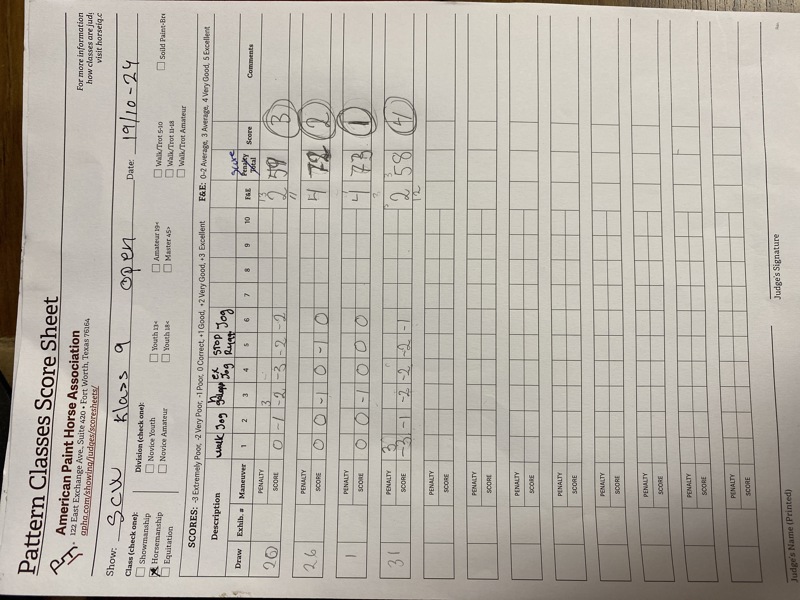 Pattern Classes Score Sheet
American Paint Horse Association
122 East Exchange Ave., Suite 420 • Fort Worth, Texas 76164
apha.com/showing/judges/scoresheets/
For more information
how classes are jud
visit horseIQ.c
Show: SCW Klass 9 open Date: 19/10-24
Class (check one):
Showmanship
Horsemanship
Equitation
Division (check one):
Novice Youth
Novice Amateur
Youth 13<
Youth 18<
Amateur 19<
Master 45>
Walk/Trot 5-10
Walk/Trot 11-18
Walk/Trot Amateur
Solid Paint-Bre
SCORES: -3 Extremely Poor, -2 Very Poor, -1 Poor, 0 Correct, +1 Good, +2 Very Good, +3 Excellent
F&E: 0-2 Average, 3 Average, 4 Very Good, 5 Excellent
Description walk Jog Jog stop Jog
Draw Exhib. # Maneuver 1 2 3 4 5 6 7 8 9 10 F&E Penalty Total Score Comments
score
20 PENALTY 3
SCORE 0 -1 -2 -3 -2 -2 2 59 3
26 PENALTY
SCORE 0 0 -1 0 -1 0 4 72 2
1 PENALTY
SCORE 0 0 -1 0 0 0 4 73 1
31 PENALTY 3
SCORE -3 -1 -2 -2 -2 -1 2 58 4
12
PENALTY
SCORE
PENALTY
SCORE
PENALTY
SCORE
PENALTY
SCORE
PENALTY
SCORE
PENALTY
SCORE
PENALTY
SCORE
PENALTY
SCORE
Judge's Name (Printed)
Judge's Signature